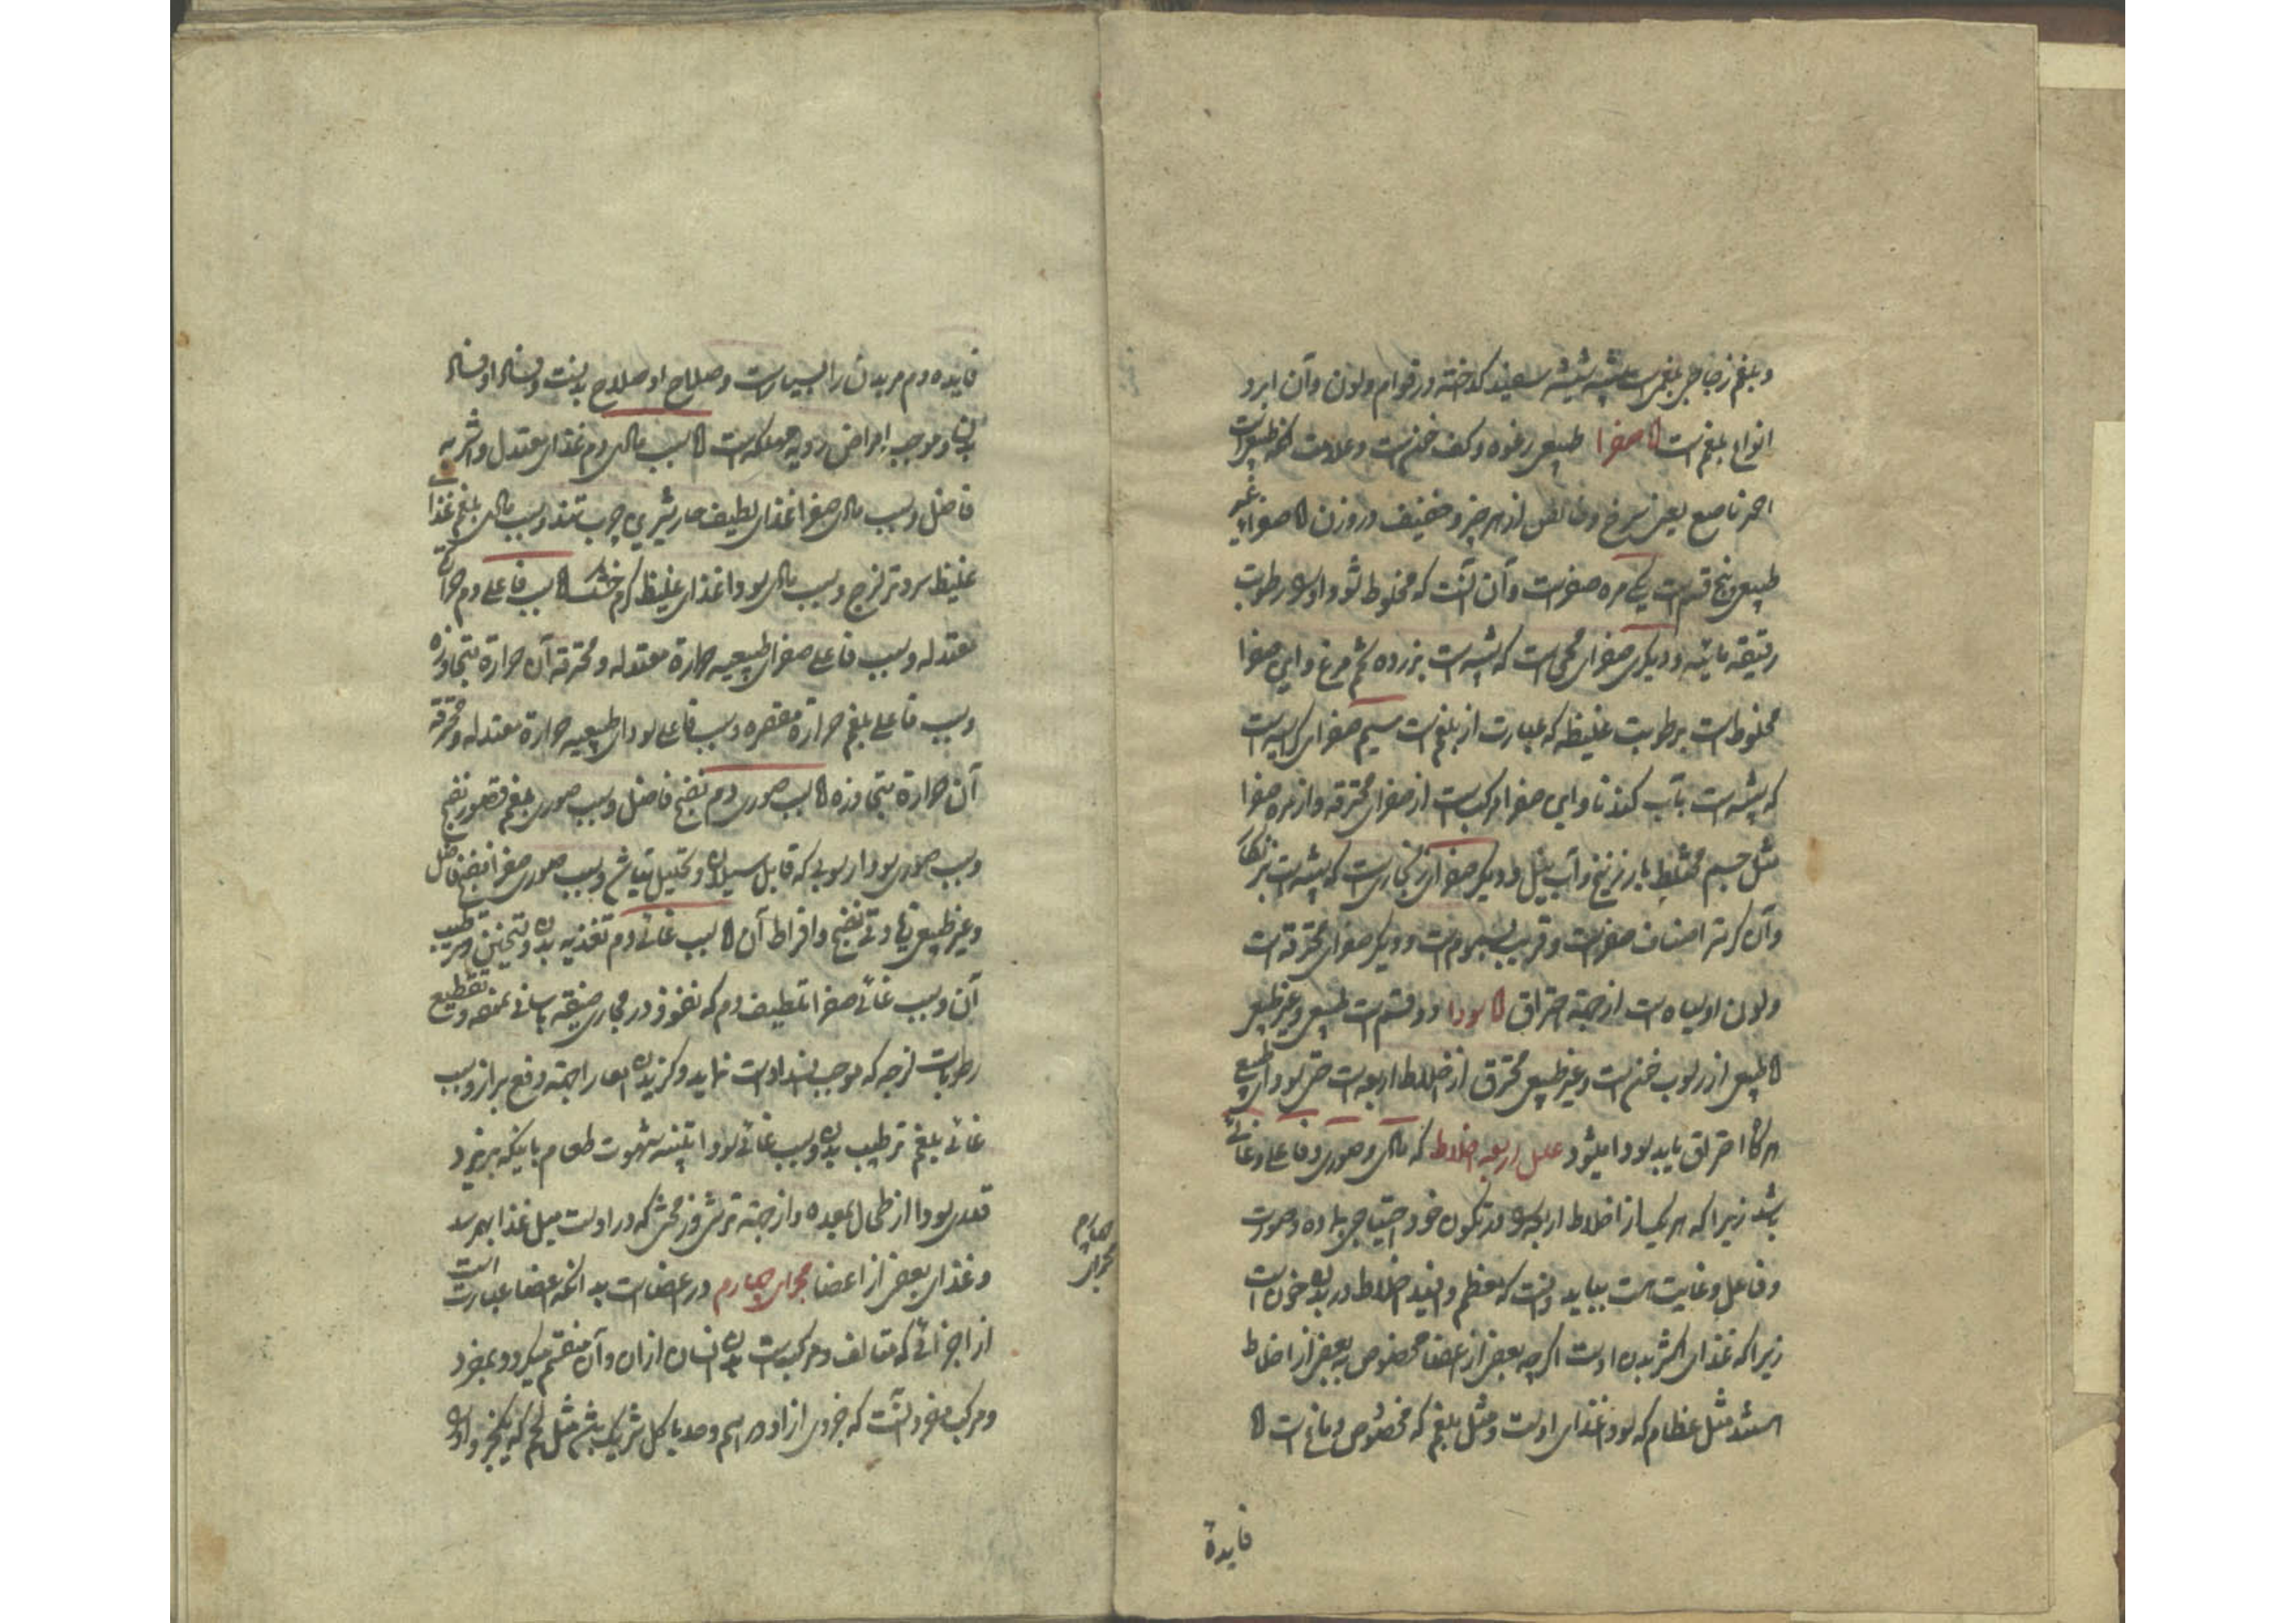 و بلغم زجاجی بلغمیست شبیه بشیشه سفید کداخته در قوام و لون و آن ابرد
انواع بلغم است اما صفرا طبیعی رغوه و کف خونست و علامت آنکه طبیعیست
احمر ناصع یعنی سرخ و خالص از هر چیز و خفیف در وزن اما صفراء غیر
طبیعی پنج قسم است یکی مره صفراست و آن آنست که مخلوط شود او را رطوبت
رقیقه مائیه و دیکری صفرای محی است که شبیه است بزرده تخم مرغ و این صفرا
مخلوط است برطوبت غلیظه که عبارت از بلغم است سیم صفرای کراثیست
که شبیه است بآب کندنا و این صفرا مرکبست از صفرای محترقه و از مره صفرا
مثل جسم مختلط بازرنیخ و آب نیل و دیکر صفرای زنجاریست که شبیه است بزنکار
و آن کرمتر اصناف صفراست و قریب بسمومست و دیکر صفرای محترقه است
و لون او سیاه است از جهة احتراق اما سودا دو قسم است طبیعی و غیر طبیعی
اما طبیعی از رسوب خونست و غیر طبیعی محترق از اخلاط اربعه است حتی سودای طبیعی
هرکاه احتراق یابد سودا میشود علل اربعه اخلاط که مادی و صوری و فاعلی و غائی
باشد زیرا که هر یک از اخلاط اربعه را در تکون خود احتیاجی بماده و صورت
و فاعل و غایت هست بباید دانست که معظم و افید اخلاط در بدن خون است
زیرا که غذای اکثر بدن اوست اکرچه بعضی از اعضا مخصوص به بعضی از اخلاط
استند مثل عظام که سودا غذای اوست و مثل بلغم که مخصوص دماغ است اما
فایدة
فایده دم مر بدن را بسیارست و صلاح او صلاح بدنست و فساد او فساد
بدن و موجب امراض ردیه مهلکه است اما سبب مادی دم غذای معتدل و اشربه
فاضل و سبب مادی صفرا غذای لطیف حار شیرین چرب تند و سبب مادی بلغم غذا
غلیظ سرد تر لزج و سبب مادی سودا غذای غلیظ کرم خشک اما سبب فاعلی دم حرارت
معتدله و سبب فاعلی صفرای طبیعیه حرارة معتدله و محترقه آن حرارة متجاوزه
و سبب فاعلی بلغم حرارة مقصره و سبب فاعلی سودای طبیعیه حرارة معتدله و محترقه
آن حرارة متجاوزه اما سبب صوری دم نضج فاضل و سبب صوری بلغم قصور نضج
و سبب صوری سودا رسوبی که قابل سیلان و تحلیل نباشد و سبب صوری صفرا نضج فاضل
و غیر طبیعی زیادتی نضج و افراط آن اما سبب غائی دم تغذیه بدن و تسخین و ترطیب
آن و سبب غائی صفرا تلطیف دم که نفوذ در مجاری ضیقه بآسانی بنماید و تقطیع
رطوبات لزجه که موجب انسداد است نماید و کزیدن امعا را جهة دفع براز و سبب
غائی بلغم ترطیب بدن و سبب غائی سودا تنبیه شهوت طعام باینکه بریزد
قدری سودا از طحال بمعده و از جهة ترشی و زمختی که در اوست میل غذا بهم رسد
و غذای بعضی از اعضا مجرای چهارم در اعضاست بدانکه اعضا عبارت است
از اجزائی که متالف و مرکبست بدن انسان ازان و آن منقسم میکردد بمفرد
و مرکب مفرد آنست که جزوی از او در اسم و حد با کل شریک باشد مثل لحم که یکجزو او را
مجرای چهارم